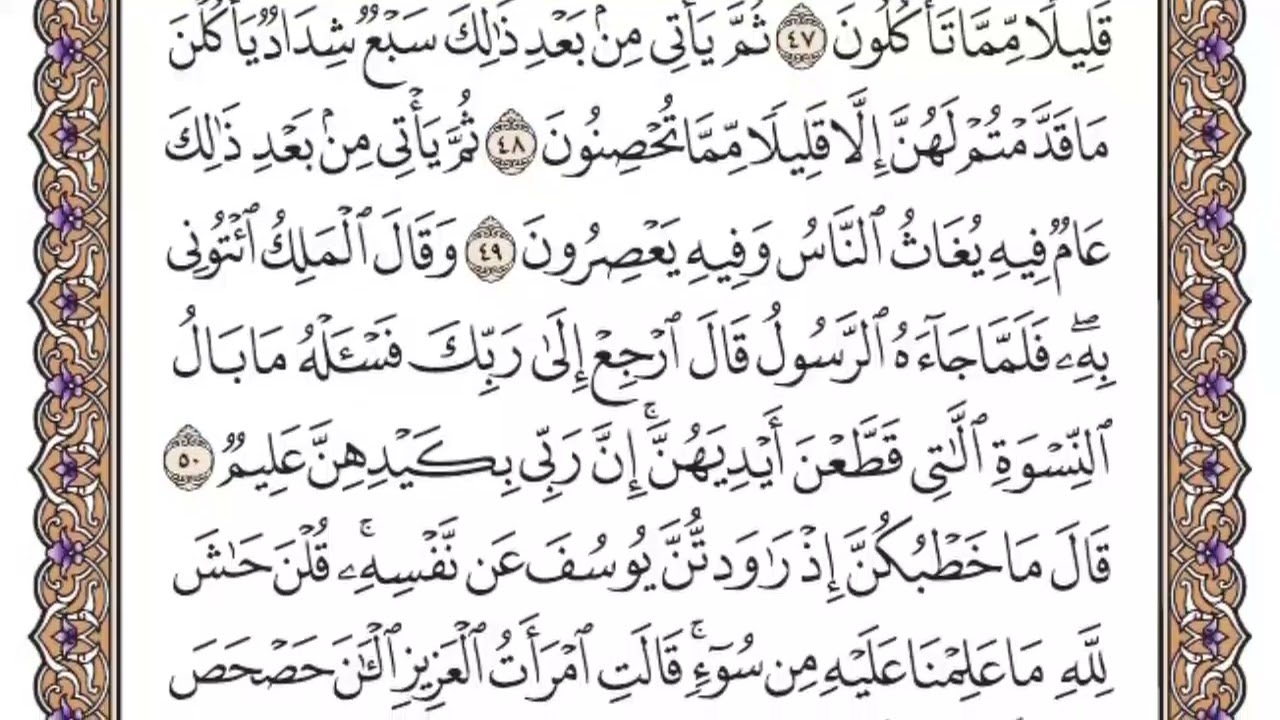 قَلِيلًا مِّمَّا تَأْكُلُونَ ٤٧ ثُمَّ يَأْتِى مِنۢ بَعْدِ ذَٰلِكَ سَبْعٌ شِدَادٌ يَأْكُلْنَ
مَا قَدَّمْتُمْ لَهُنَّ إِلَّا قَلِيلًا مِّمَّا تُحْصِنُونَ ٤٨ ثُمَّ يَأْتِى مِنۢ بَعْدِ ذَٰلِكَ
عَامٌ فِيهِ يُغَاثُ ٱلنَّاسُ وَفِيهِ يَعْصِرُونَ ٤٩ وَقَالَ ٱلْمَلِكُ ٱئْتُونِى
بِهِۦۖ فَلَمَّا جَآءَهُ ٱلرَّسُولُ قَالَ ٱرْجِعْ إِلَىٰ رَبِّكَ فَسْـَٔلْهُ مَا بَالُ
ٱلنِّسْوَةِ ٱلَّٰتِى قَطَّعْنَ أَيْدِيَهُنَّۚ إِنَّ رَبِّى بِكَيْدِهِنَّ عَلِيمٌ ٥٠
قَالَ مَا خَطْبُكُنَّ إِذْ رَٰوَدتُّنَّ يُوسُفَ عَن نَّفْسِهِۦۚ قُلْنَ حَٰشَ
لِلَّهِ مَا عَلِمْنَا عَلَيْهِ مِن سُوٓءٍۚ قَالَتِ ٱمْرَأَتُ ٱلْعَزِيزِ ٱلْـَٰٔنَ حَصْحَصَ